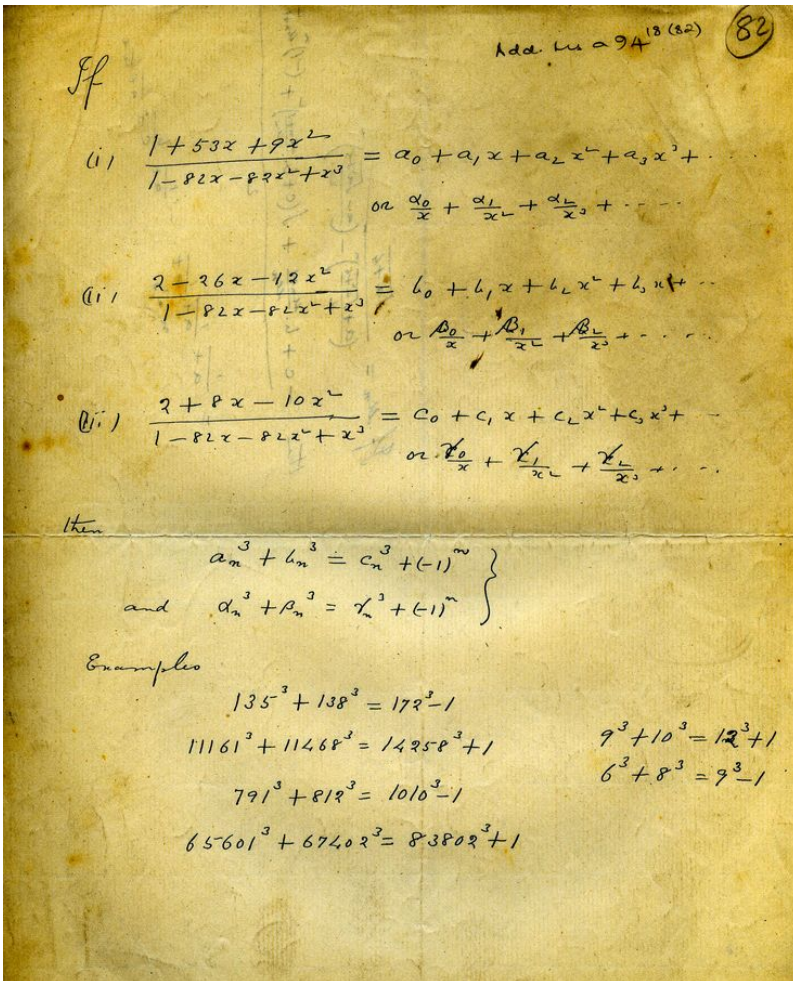 Add. Ms a 94¹⁸ ⁽⁸²⁾ 82
If
(i) (1 + 53x + 9x²)/(1 − 82x − 82x² + x³) = a₀ + a₁x + a₂x² + a₃x³ + ....
or α₀/x + α₁/x² + α₂/x³ + ....
(ii) (2 − 26x − 12x²)/(1 − 82x − 82x² + x³) = b₀ + b₁x + b₂x² + b₃x³ + ..
or β₀/x + β₁/x² + β₂/x³ + .....
(iii) (2 + 8x − 10x²)/(1 − 82x − 82x² + x³) = c₀ + c₁x + c₂x² + c₃x³ + ..
or γ₀/x + γ₁/x² + γ₂/x³ + ....
then
aₙ³ + bₙ³ = cₙ³ + (−1)ⁿ }
and αₙ³ + βₙ³ = γₙ³ + (−1)ⁿ
Examples
135³ + 138³ = 172³ − 1
11161³ + 11468³ = 14258³ + 1
791³ + 812³ = 1010³ − 1
65601³ + 67402³ = 83802³ + 1
9³ + 10³ = 12³ + 1
6³ + 8³ = 9³ − 1